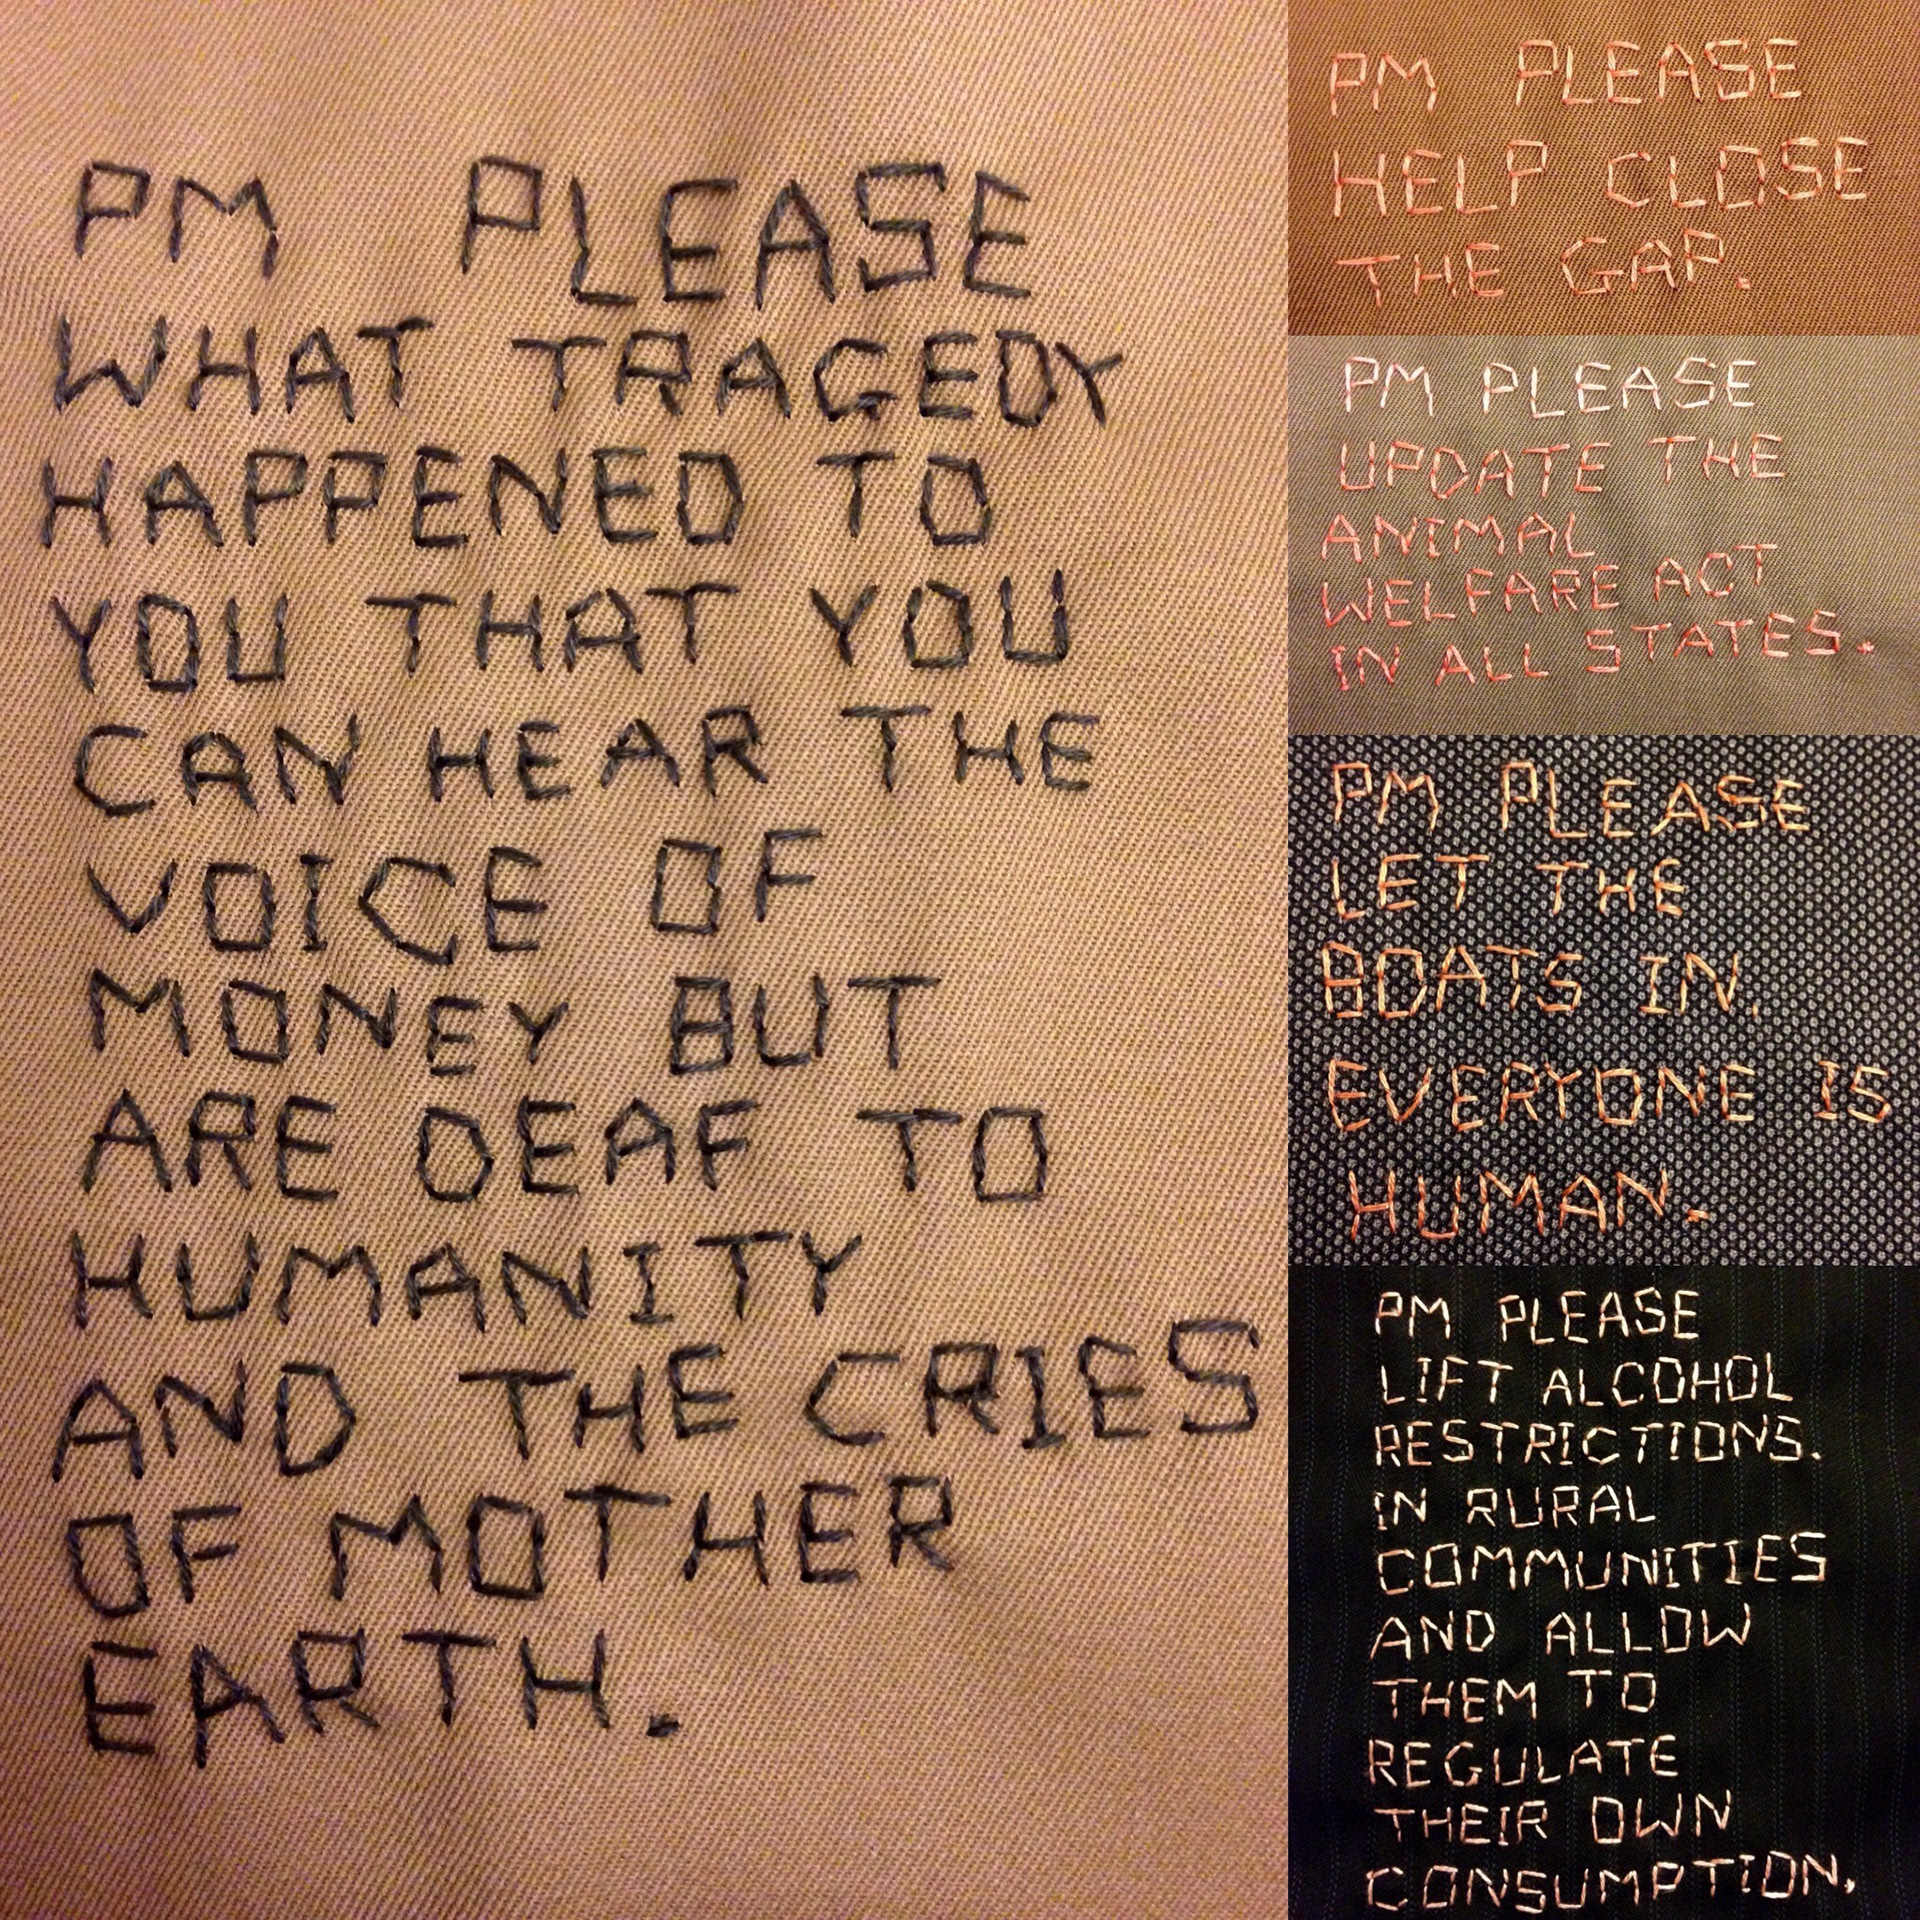 PM PLEASE
WHAT TRAGEDY
HAPPENED TO
YOU THAT YOU
CAN HEAR THE
VOICE OF
MONEY BUT
ARE DEAF TO
HUMANITY
AND THE CRIES
OF MOTHER
EARTH.
PM PLEASE
HELP CLOSE
THE GAP.
PM PLEASE
UPDATE THE
ANIMAL
WELFARE ACT
IN ALL STATES.
PM PLEASE
LET THE
BOATS IN.
EVERYONE IS
HUMAN.
PM PLEASE
LIFT ALCOHOL
RESTRICTIONS.
IN RURAL
COMMUNITIES
AND ALLOW
THEM TO
REGULATE
THEIR OWN
CONSUMPTION.